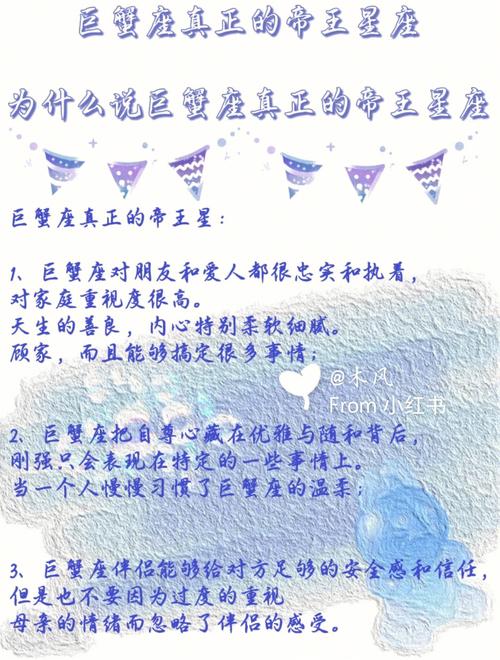 巨蟹座真正的帝王星座
为什么说巨蟹座真正的帝王星座
巨蟹座真正的帝王星：
1、巨蟹座对朋友和爱人都很忠实和执着，
对家庭重视度很高。
天生的善良，内心特别柔软细腻。
顾家，而且能够搞定很多事情；
@木风
From 小红书
2、巨蟹座把自尊心藏在优雅与随和背后，
刚强只会表现在特定的一些事情上。
当一个人慢慢习惯了巨蟹座的温柔；
3、巨蟹座伴侣能够给对方足够的安全感和信任，
但是也不要因为过度的重视
母亲的情绪而忽略了伴侣的感受。